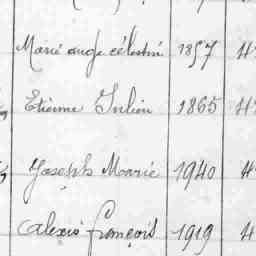 Marie ange célestin 1857
Etienne Julien 1865
Joseph Marie 1940
Alexis françois 1919